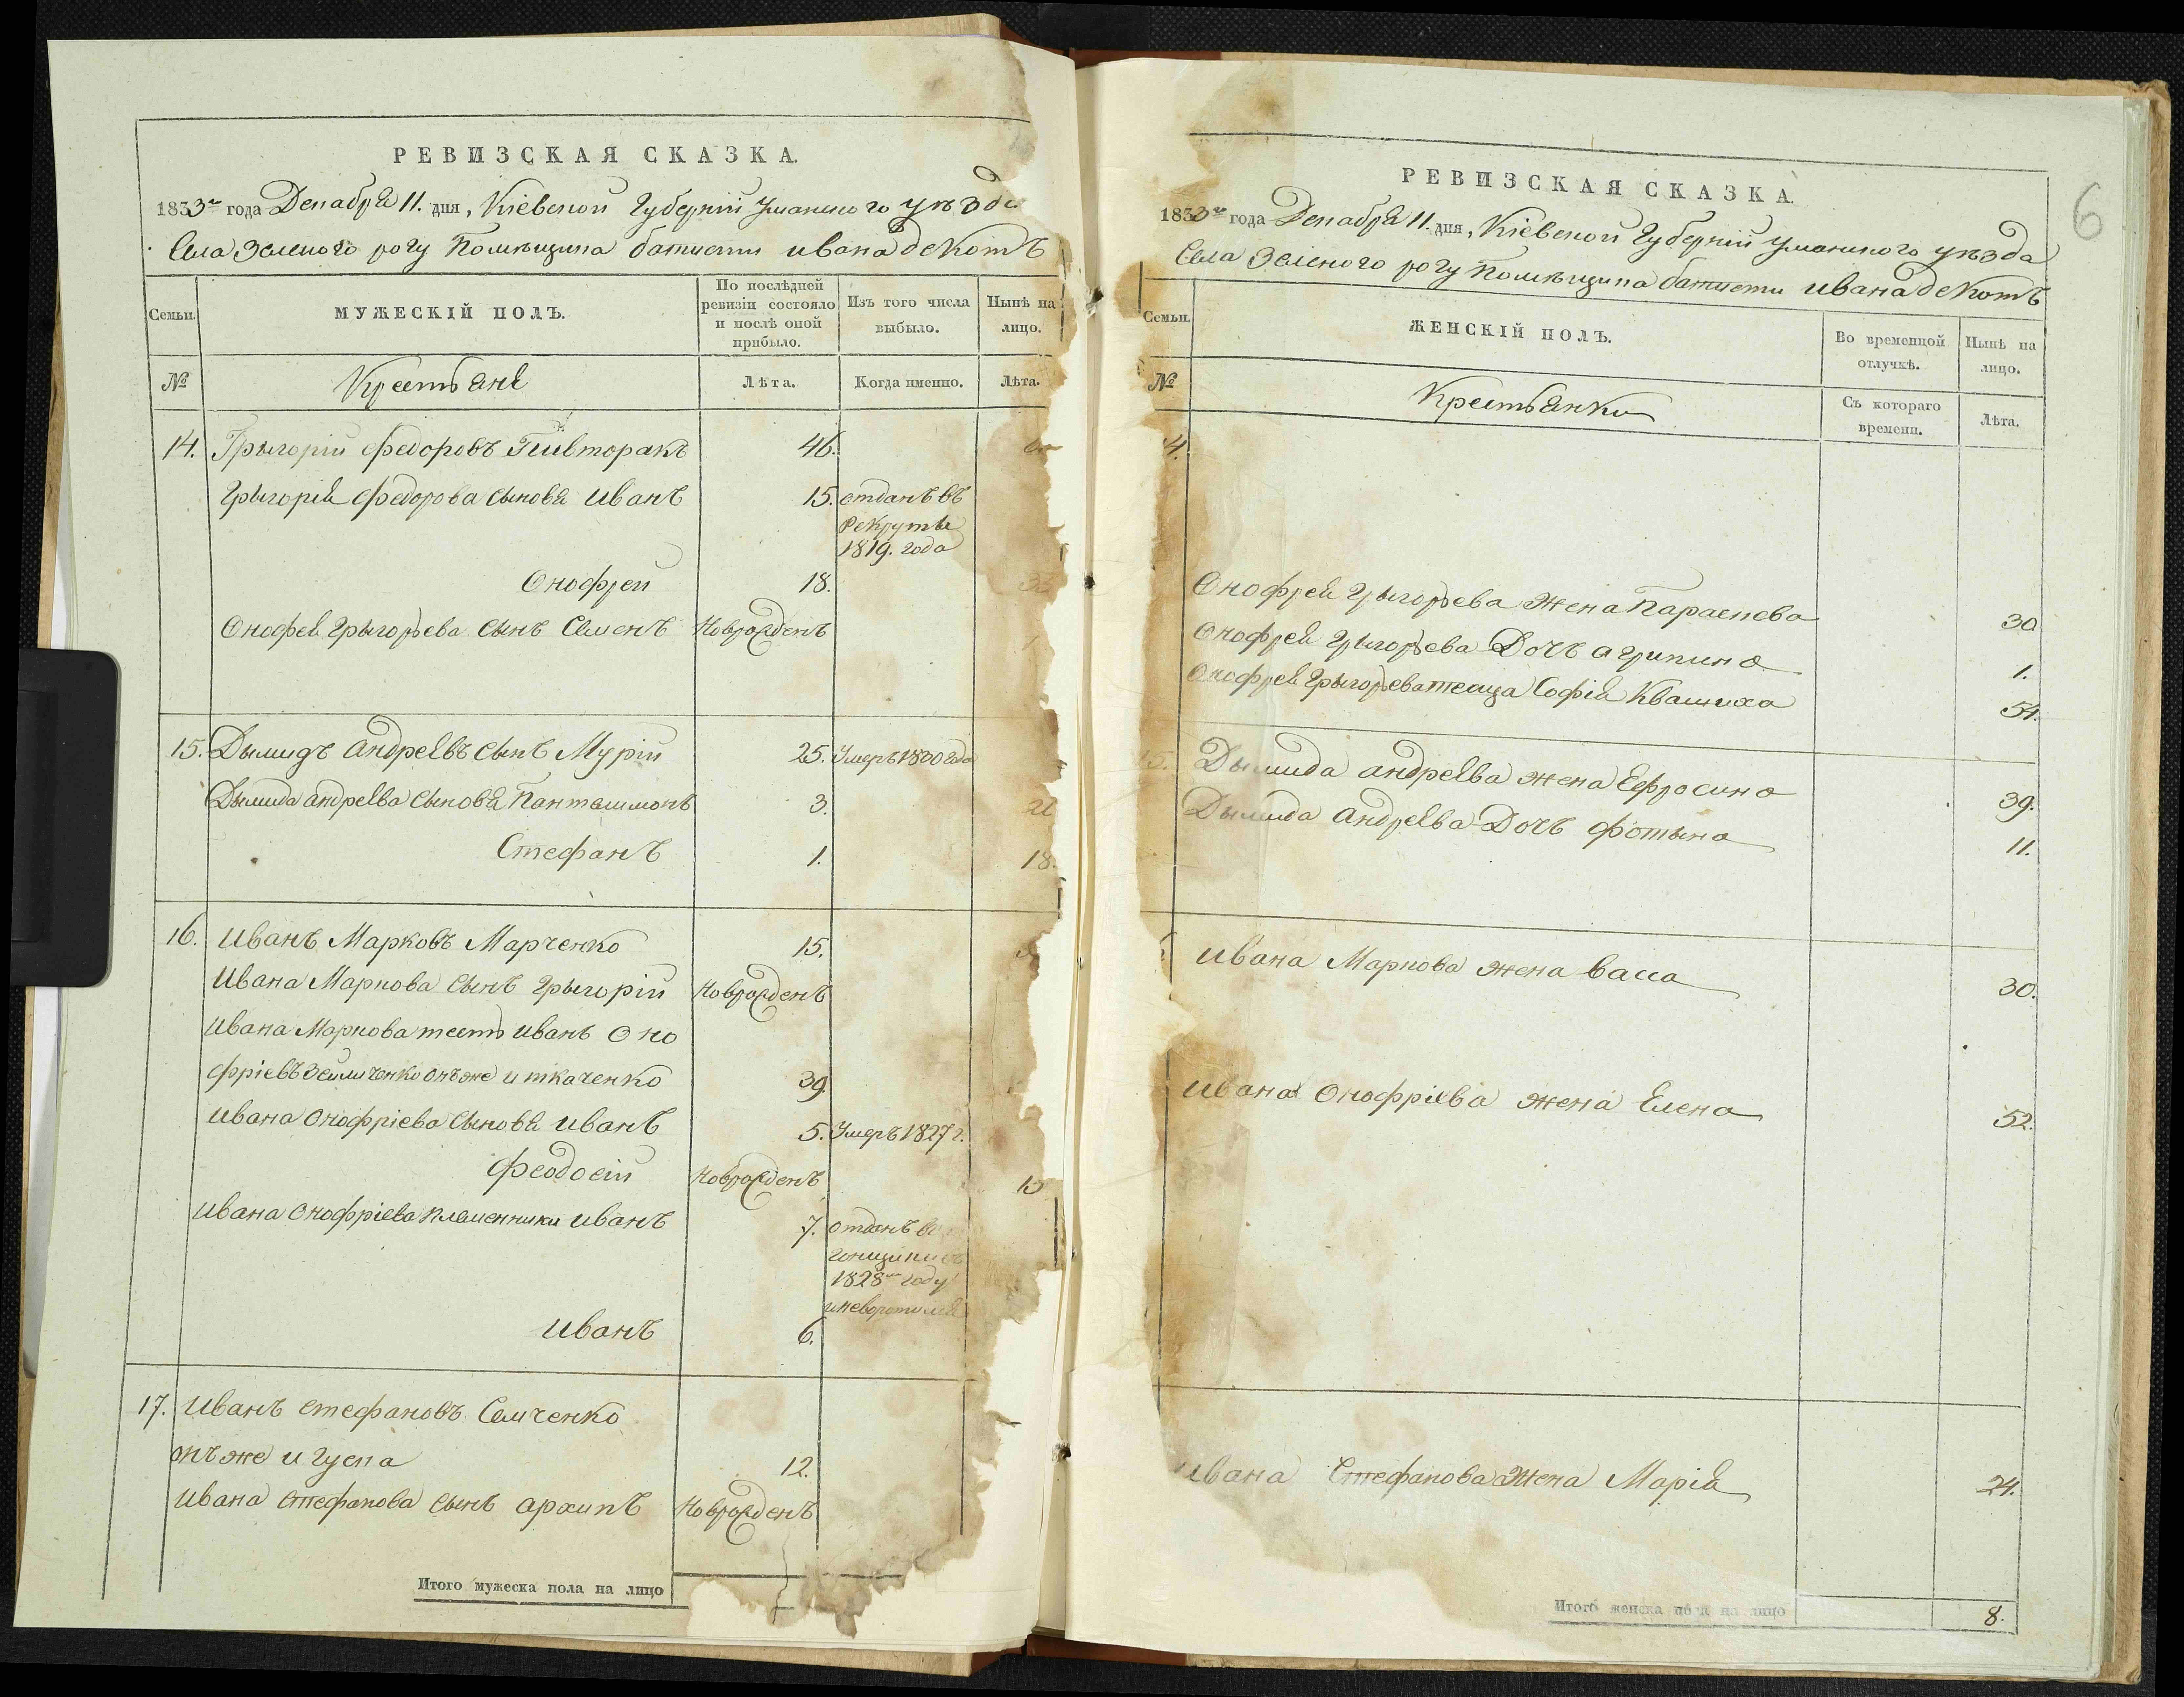 РЕВИЗСКАЯ СКАЗКА.
1833го года Декабря 11. дня, Кіевской Губерніи Уманского уѣзда
Села Зеленого рогу Помѣщика батисти ивана декотъ
Семьи.
МУЖЕСКІЙ ПОЛЪ.
По послѣдней ревизіи состояло и послѣ оной прибыло.
Изъ того числа выбыло.
Нынѣ на лицо.
№
Крестьяне
Лѣта.
Когда именно.
Лѣта.
14. Грыгорій федоровъ Пивторакъ 46.
Грыгорія федорова сыновя иванъ 15. отданъ въ
рекруты
1819. года
Онофрей 18. 33
Онофрея Грыгорьева сынъ Семенъ Новрожденъ 1
15. Дымидъ андреевъ сынъ Мурій 25. Умеръ 1830 года
Дымида андреева сыновя Пантелимонъ 3.
Стефанъ 1. 18.
16. иванъ Марковъ Марченко 15.
ивана Маркова сынъ Грыгорій Новрожденъ
ивана Маркова тесть иванъ Оно
фріевъ онъже и ткаченко 39.
ивана Онофріева сыновя иванъ 5. Умеръ 1827 г.
феодосій Новрожденъ 15
ивана Онофріева племенники иванъ 7. отданъ
1828мъ году
иневоротился
иванъ 6.
17. иванъ стефановъ Семченко
онъже и гуска 12.
ивана стефанова сынъ архипъ Новрожденъ
Итого мужеска пола на лицо
6
РЕВИЗСКАЯ СКАЗКА.
1833го года Декабря 11. дня, Кіевской Губерніи уманского уѣзда
Села Зеленого рогу Помѣщика батисти ивана декотъ
Семьи.
ЖЕНСКІЙ ПОЛЪ.
Во временной отлучкѣ.
Нынѣ на лицо.
№
Крестьянки
Съ котораго времени.
Лѣта.
4.
Онофрея грыгорьева жена Параскева 30
Онофрея грыгорьева Дочь агрипина 1.
Онофрея грыгорьева теща Софія Квашиха 54.
15. Дымида андреева жена Ефросина 39.
Дымида андреева Дочь фотына 11.
ивана Маркова жена васса 30.
ивана Онофріева жена Елена 52.
ивана Стефанова жена Марія 24.
Итого женска пола на лицо 8.